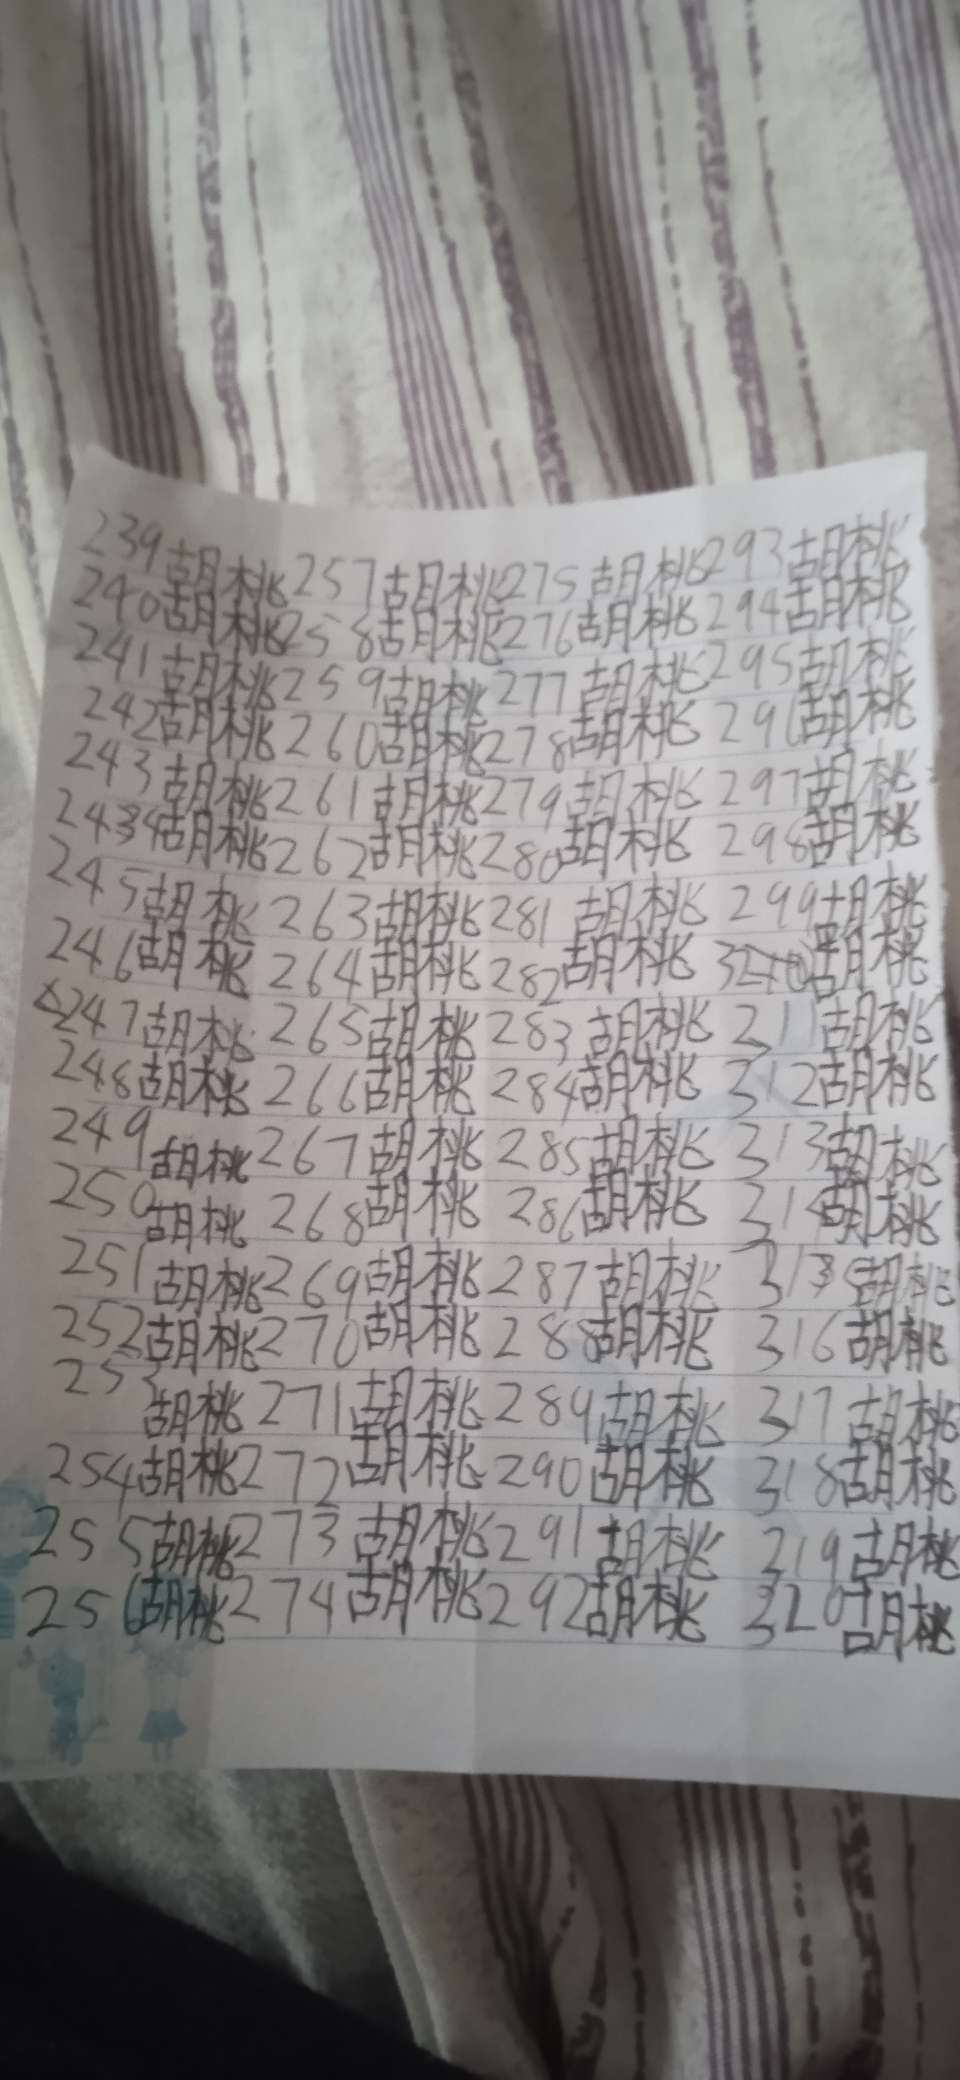 239胡桃 257胡桃 275胡桃 293胡桃
240胡桃 258胡桃 276胡桃 294胡桃
241胡桃 259胡桃 277胡桃 295胡桃
242胡桃 260胡桃 278胡桃 296胡桃
243胡桃 261胡桃 279胡桃 297胡桃
244胡桃 262胡桃 280胡桃 298胡桃
245胡桃 263胡桃 281胡桃 299胡桃
246胡桃 264胡桃 282胡桃 胡桃
247胡桃 265胡桃 283胡桃 311胡桃
248胡桃 266胡桃 284胡桃 312胡桃
249胡桃 267胡桃 285胡桃 313胡桃
250胡桃 268胡桃 286胡桃 314胡桃
251胡桃 269胡桃 287胡桃 315胡桃
252胡桃 270胡桃 288胡桃 316胡桃
253胡桃 271胡桃 289胡桃 317胡桃
254胡桃 272胡桃 290胡桃 318胡桃
255胡桃 273胡桃 291胡桃 319胡桃
256胡桃 274胡桃 292胡桃 320胡桃